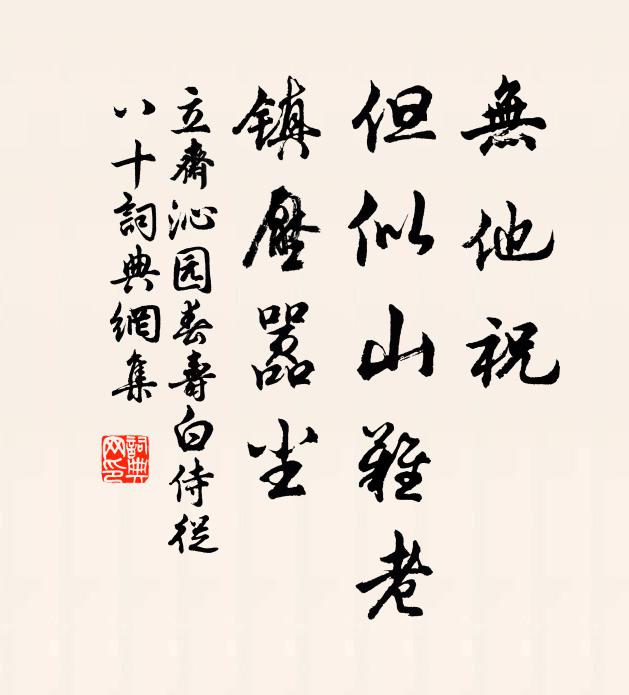 無他祝
但似山難老
鎮壓囂尘
立齋沁园春壽白侍從
八十詞典網集
詞典网印